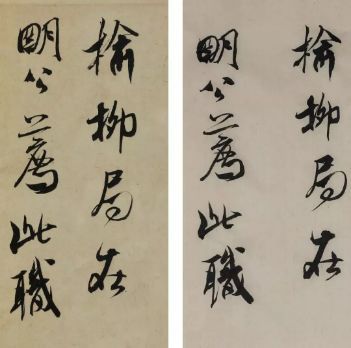 榆柳局在
明公薦此職
榆柳局在
明公薦此職